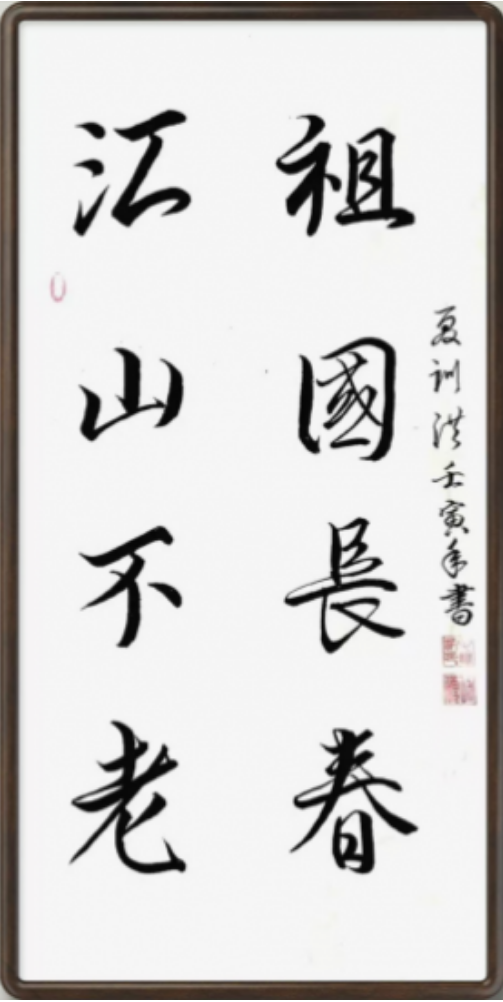 祖國長春
江山不老
夏训洪壬寅年書